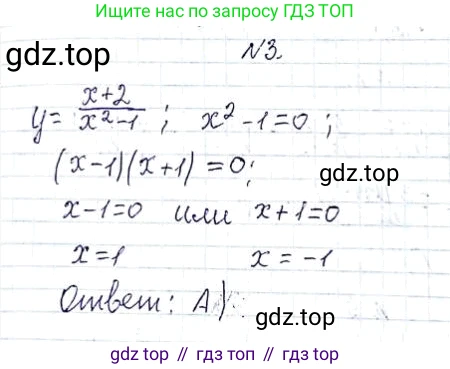 Ищите нас по запросу ГДЗ ТОП
gdz.top
N3.
y = \frac{x+2}{x²-1} ; x² - 1 = 0 ;
(x-1)(x+1) = 0;
gdz.top
x-1=0 или x+1=0
x=1 x = -1
Ответ: А)
gdz.top
gdz.top // гдз.top // gdz.top